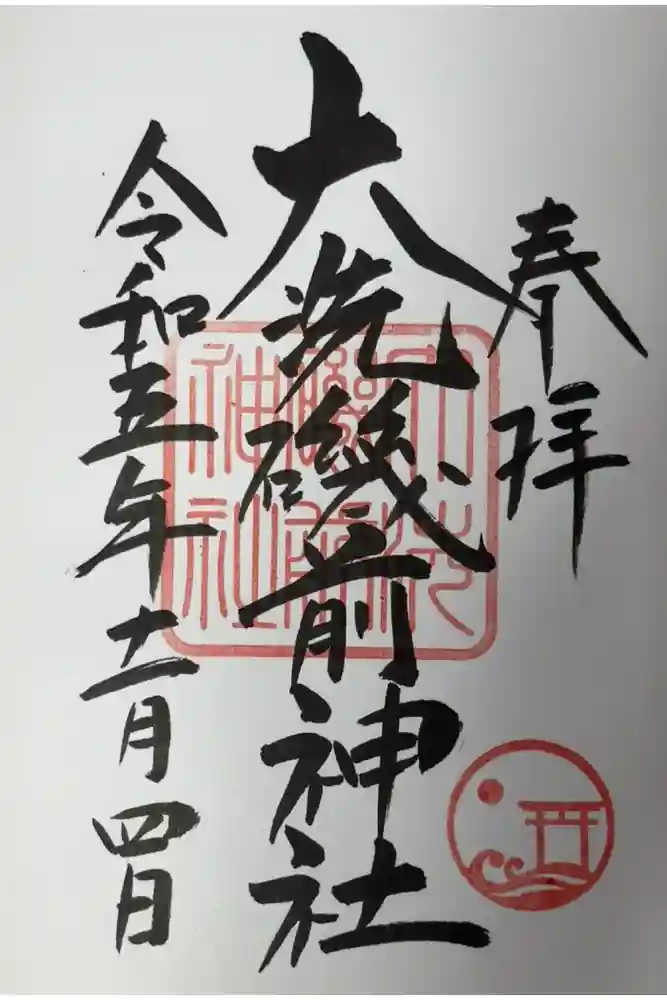 奉拝
大洗磯前神社
令和五年十一月四日
大洗
磯前
神社